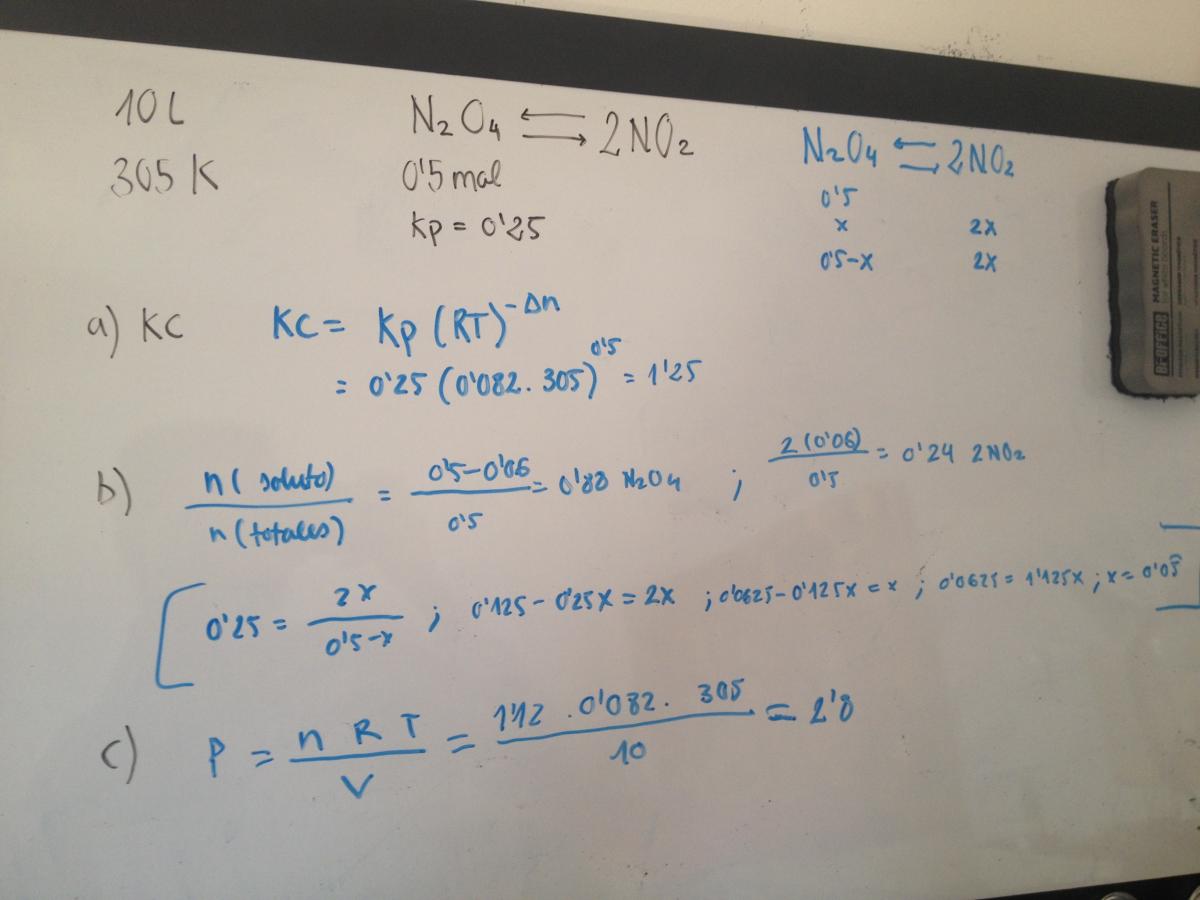 10L
305 K
N₂O₄ ⇌ 2NO₂
0'5 mol
Kp = 0'25
N₂O₄ ⇌ 2NO₂
0'5
x 2x
0'5-x 2x
MAGNETIC ERASER
BI-OFFICE
a) KC KC = Kp (RT)^-Δn
= 0'25 (0'082 . 305)^0'5 = 1'25
b) n( soluto) / n (totales) = 0'5-0'06 / 0'5 = 0'88 N₂O₄ ; 2 (0'06) / 0'5 = 0'24 2NO₂
[ 0'25 = 2x / 0'5-x ; 0'125 - 0'25x = 2x ; 0'0625 - 0'125x = x ; 0'0625 = 1'125x ; x = 0'05 ]
c) P = n R T / V = 1'12 . 0'082 . 305 / 10 = 2'8